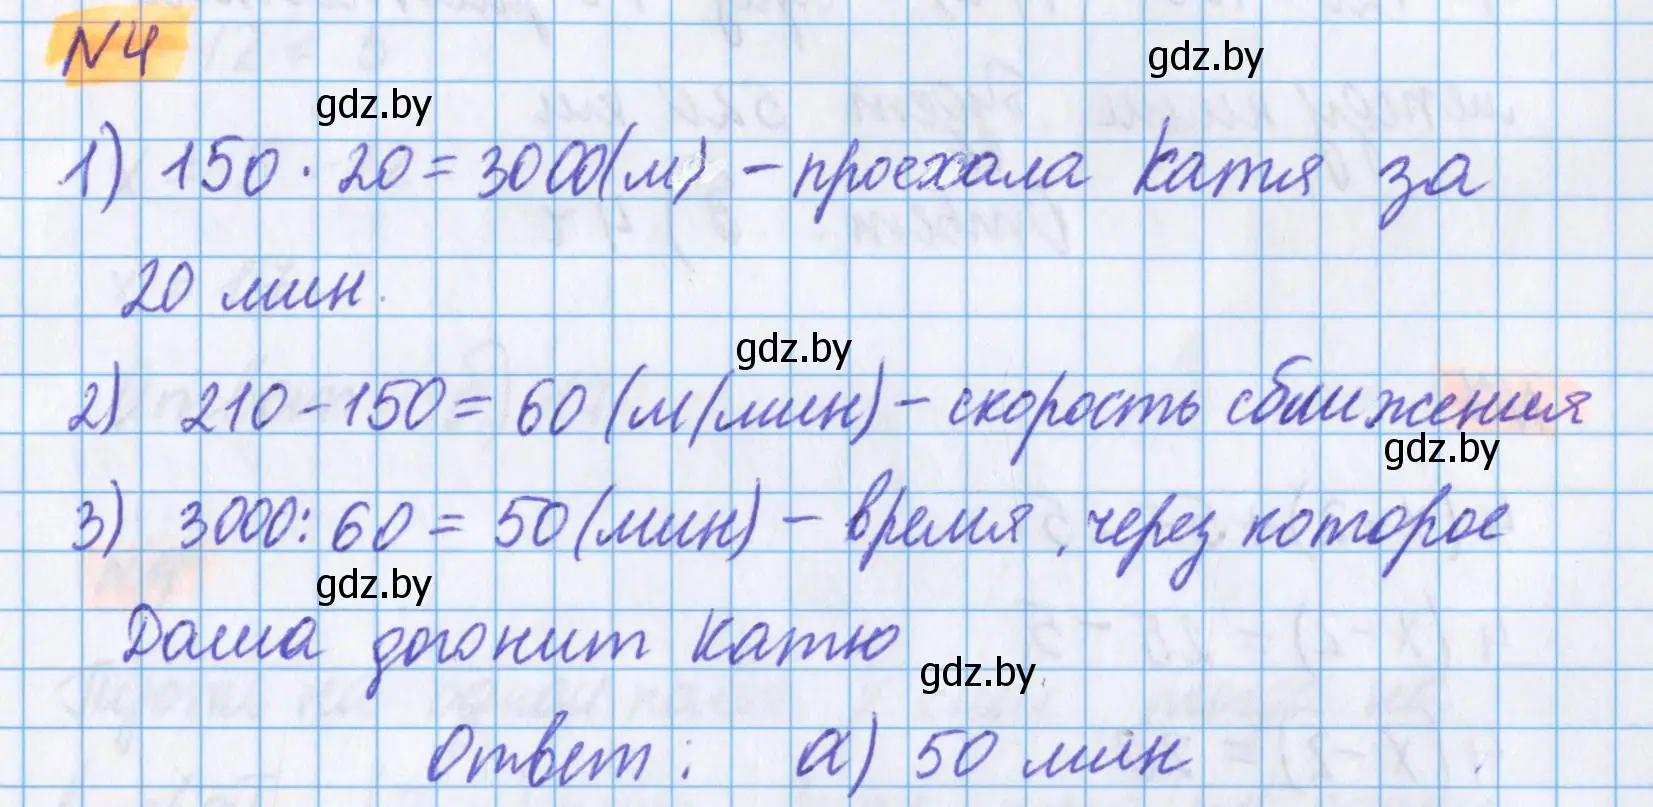 N4
gdz.by
gdz.by
1) 150 · 20 = 3000(м) – проехала Катя за
20 мин.
gdz.by
2) 210 – 150 = 60 (м/мин) – скорость сближения
gdz.by
3) 3000 : 60 = 50 (мин) – время, через которое
gdz.by
Даша догонит Катю
gdz.by
Ответ: а) 50 мин